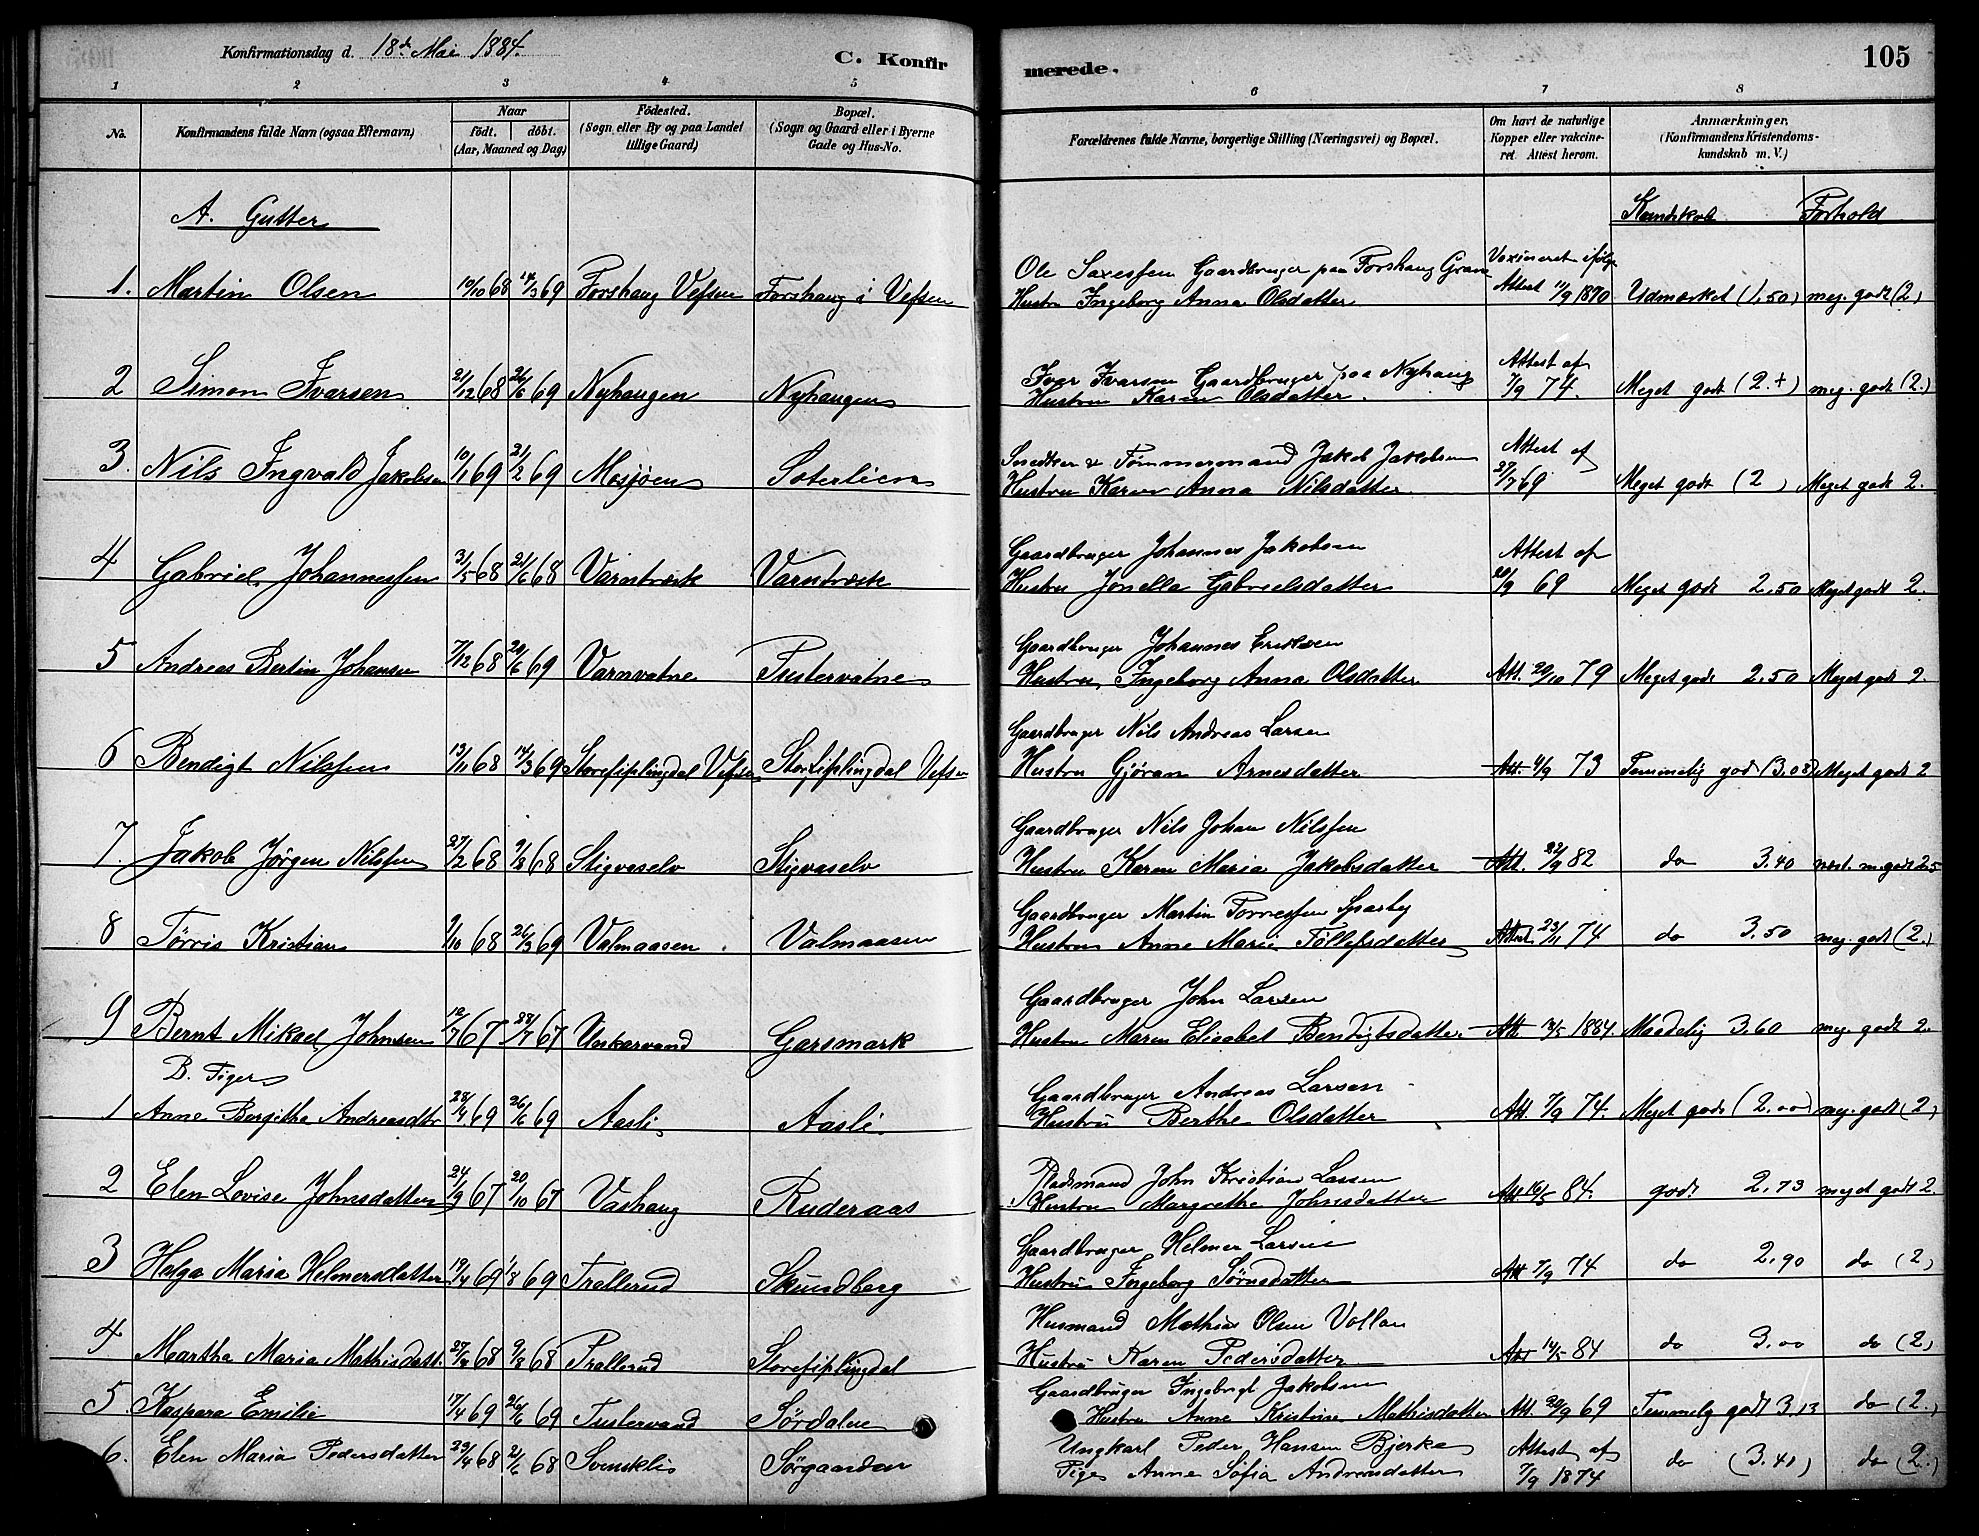 Konfirmationsdag d. 18de Mai 1884.
C. Konfirmerede.
105
1 2 3 4 5 6 7 8
No. Konfirmandens fulde Navn (ogsaa Efternavn) Naar født. døbt. (Aar, Maaned og Dag) Fødested. (Sogn eller By og paa Landet tillige Gaard) Bopæl. (Sogn og Gaard eller i Byerne Gade og Hus-No. Forældrenes fulde Navne, borgerlige Stilling (Næringsvei) og Bopæl. Om havt de naturlige Kopper eller vakcineret. Attest herom. Anmærkninger. (Konfirmandens Kristendomskundskab m. V.)
A. Gutter
Kundskab Forhold
Ole Saxessen Gaardbruger paa Forshaug Grane Vaxineret ifølge
1. Martin Olsen 10/10 68 14/3 69 Forshaug Vefsen Forshaug i Vefsen Hustru Ingeborg Anna Olsdatter Attest 11/9 1870 Udmærket (1,50) meg. godt (2)
Ivar Ivarsen Gaardbruger paa Nyhaug Attest af
2 Simon Ivarsen 21/12 68 26/6 69 Nyhaugen Nyhaugen Hustru Karen Olsdatter. 7/9 74. Meget godt (2.+) meg. godt (2.)
Snedker & Tømmermand Jakob Jakobsen Attest af
3. Nils Ingvald Jakobsen 10/1 69 21/2 69 Mosjøen Soterlien Hustru Karen Anna Nilsdatter. 27/7 69 Meget godt (2) Meget godt 2.
Gaardbruger Johannes Jakobsen Attest af
4 Gabriel Johannessen 31/5 68 21/6 68 Varntræsk Varntræsk Hustru Jonella Gabrielsdatter 20/9 69 Meget godt 2.50 Meget godt 2.
Gaardbruger Johannes Eriksen
5 Andreas Bertin Johansen 7/12 68 20/6 69 Varnvatne Tustervatne Hustru Ingeborg Anna Olsdatter Att. 20/10 79 Meget godt 2.50 Meget godt 2.
Gaardbruger Nils Andreas Larsen
6 Bendigt Nilssen 13/11 68 14/3 69 Storefiplingdal Vefsen Storfiplingdal Vefsen Hustru Gjøran Arnesdatter Att. 4/9 73 Temmelig god (3.08) Meget godt 2
Gaardbruger Nils Johan Nilssen
7. Jakob Jørgen Nilssen 27/2 68 9/8 68 Stigvaselv Stigvaselv Hustru Karen Maria Jakobsdatter Att. 22/9 82 do 3.40 næst. m. godt 2.5
Gaardbruger Martin Torressen Sparby
8 Tørris Kristian 9/10 68 26/3 69 Valmaasen Valmaasen Hustru Anne Marie Tøllefsdatter Attest. 23/11 74 do 3.50 meg. godt (2.)
Gaardbruger John Larsen
9 Bernt Mikael Johnsen 12/7 67 28/7 67 Unkarvand Garsmark Hustru Maren Elisabet Bendigtsdatter Att. 12/5 1884. Maadelig 3.60 meg. godt 2.
B. Piger
Gaardbruger Andreas Larsen
1 Anne Bergitha Andreasdtr 28/4 69 26/6 69 Aasli Aasli Hustru Berthe Olsdatter Att. 7/9 74. Meget godt (2.00) meg. godt (2)
Pladsmand John Kristian Larsen
2 Elen Lovise Johnsdatter 24/9 67 20/10 67 Vashaug Ruderaas Hustru Margrethe Johnsdatter Att 16/5 84. godt 2.73 meget godt 2.
Gaardbruger Helmer Larsen
3 Helga Maria Helmersdatter 19/4 69 1/8 69 Trallerud Skundberg Hustru Ingeborg Sørnsdatter Att 7/9 74 do 2.90 do (2)
Husmand Mathias Olsen Vollan
4 Martha Maria Mathisdatt. 27/4 68 9/8 68 Trallerud Storefiplingdal Hustru Karen Pedersdatter Att 14/5 84 do 3.00 do (2)
Gaardbruger Ingebrigt Jakobsen
5. Kaspara Emilie 17/4 69 26/6 69 Tustervand Sørdalen Hustru Anne Kristine Mathisdatter Att. 20/9 69 Temmelig godt 3.13 do (2.)
Ungkarl Peder Hansen Bjerke Attest af
6. Elen Maria Pedersdatter 23/4 68 21/6 68 Svenskli Sørgaarden Pige Anne Sofia Andreasdatter 7/9 1874 do (3.40) do (2.)